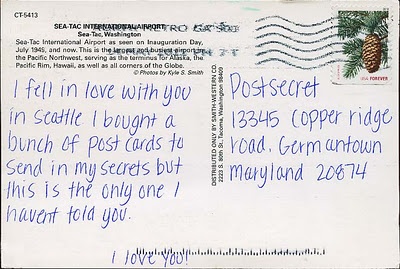 CT-5413
SEA-TAC INTERNATIONAL AIRPORT
Sea-Tac, Washington
Sea-Tac International Airport as seen on Inauguration Day,
July 1945, and now. This is the largest and busiest airport in
the Pacific Northwest, serving as the terminus for Alaska, the
Pacific Rim, Hawaii, as well as all corners of the Globe.
© Photos by Kyle S. Smith
I fell in love with you
in Seattle I bought a
bunch of post cards to
send in my secrets but
this is the only one I
havent told you.
I love you!
DISTRIBUTED ONLY BY SMITH-WESTERN CO.
2223 S. 80th St., Tacoma, Washington 98409
USA FOREVER
Postsecret
13345 Copper ridge
road, Germantown
maryland 20874